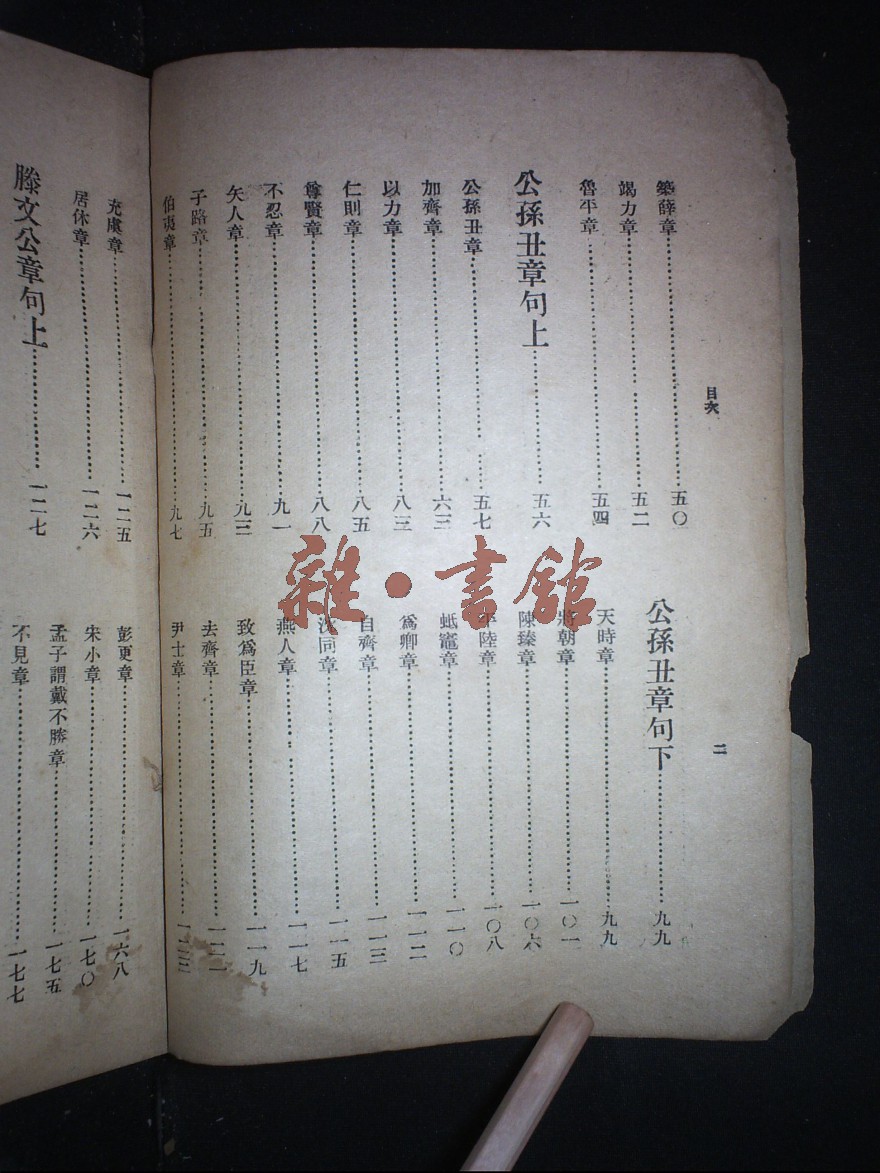 目次
二
築薛章 五〇
竭力章 五二
魯平章 五四
公孫丑章句上 五六
公孫丑章 五七
加齊章 六三
以力章 八三
仁則章 八五
尊賢章 八八
不忍章 九一
矢人章 九三
子路章 九五
伯夷章 九七
公孫丑章句下 九九
天時章 九九
將朝章 一〇一
陳臻章 一〇六
平陸章 一〇八
蚳鼃章 一一〇
爲卿章 一一二
自齊章 一一三
沈同章 一一五
燕人章 一一七
致爲臣章 一一九
去齊章 一二一
尹士章 一二三
充虞章 一二五
居休章 一二六
滕文公章句上 一二七
彭更章 一六八
宋小章 一七〇
孟子謂戴不勝章 一七五
不見章 一七七
雜·書館